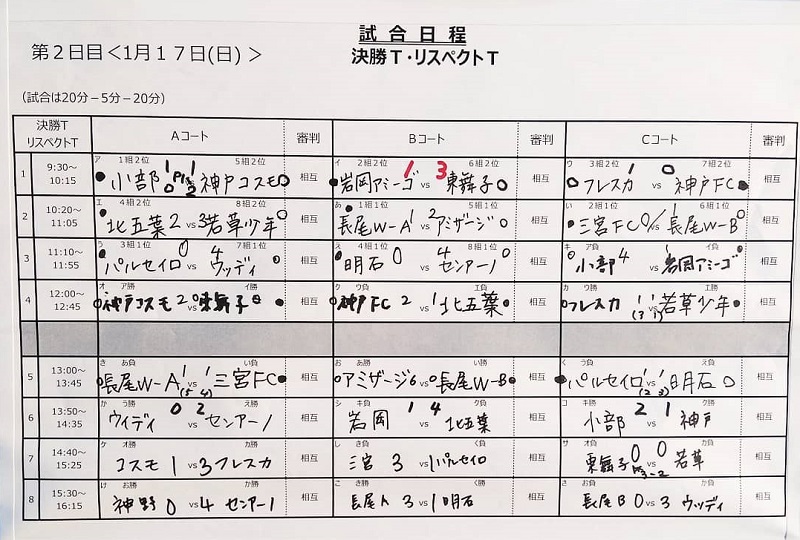 試合日程
第2日目<1月17日(日)>
決勝T・リスペクトT
(試合は20分-5分-20分)
決勝T リスペクトT Aコート 審判 Bコート 審判 Cコート 審判
ア 1組2位 5組2位 イ 2組2位 6組2位 ウ 3組2位
1 9:30~ 10:15 小部 1 PK 1 神戸コスモ 相互 岩岡アミーゴ 1 vs 3 東舞子 相互 フレスカ 1 vs 0 神戸FC 相互
エ 4組2位 8組2位 あ 1組1位 5組1位 い 2組1位 6組1位
2 10:20~ 11:05 北五葉 2 vs 3 若草少年 相互 長尾W-A 1 vs 2 アミザージ 相互 三宮FC 0 1 長尾W-B 相互
う 3組1位 7組1位 え 4組1位 8組1位 キ ア負 イ負
3 11:10~ 11:55 パルセイロ 0 vs 4 ウッディ 相互 明石 0 vs 4 センアーノ 相互 小部 4 vs 1 岩岡アミーゴ 相互
オ ア勝 イ勝 ク ウ負 エ負 カ ウ勝 エ勝
4 12:00~ 12:45 神戸コスモ 2 vs 東舞子 相互 神戸FC 2 vs 1 北五葉 相互 フレスカ 1 1 (3 1) 若草少年 相互
き あ負 い負 お あ勝 い勝 く う負 え負
5 13:00~ 13:45 長尾W-A 1 vs 1 (5 4) 三宮FC 相互 アミザージ 6 vs 0 長尾W-B 相互 パルセイロ 1 vs 1 (2 3) 明石 相互
か う勝 え勝 シ キ負 ク負 コ キ勝 ク勝
6 13:50~ 14:35 ウィディ 0 vs 2 センアーノ 相互 岩岡 1 vs 4 北五葉 相互 小部 2 vs 1 神戸 相互
ケ オ勝 カ勝 し き負 く負 サ オ負 カ負
7 14:40~ 15:25 コスモ 1 vs 3 フレスカ 相互 三宮 3 vs 1 パルセイロ 相互 東舞子 0 vs 0 PK 3-2 若草 相互
け お勝 か勝 こ き勝 く勝 さ お負 か負
8 15:30~ 16:15 神野 0 vs 4 センアーノ 相互 長尾A 3 vs 1 明石 相互 長尾B 0 vs 3 ウッディ 相互